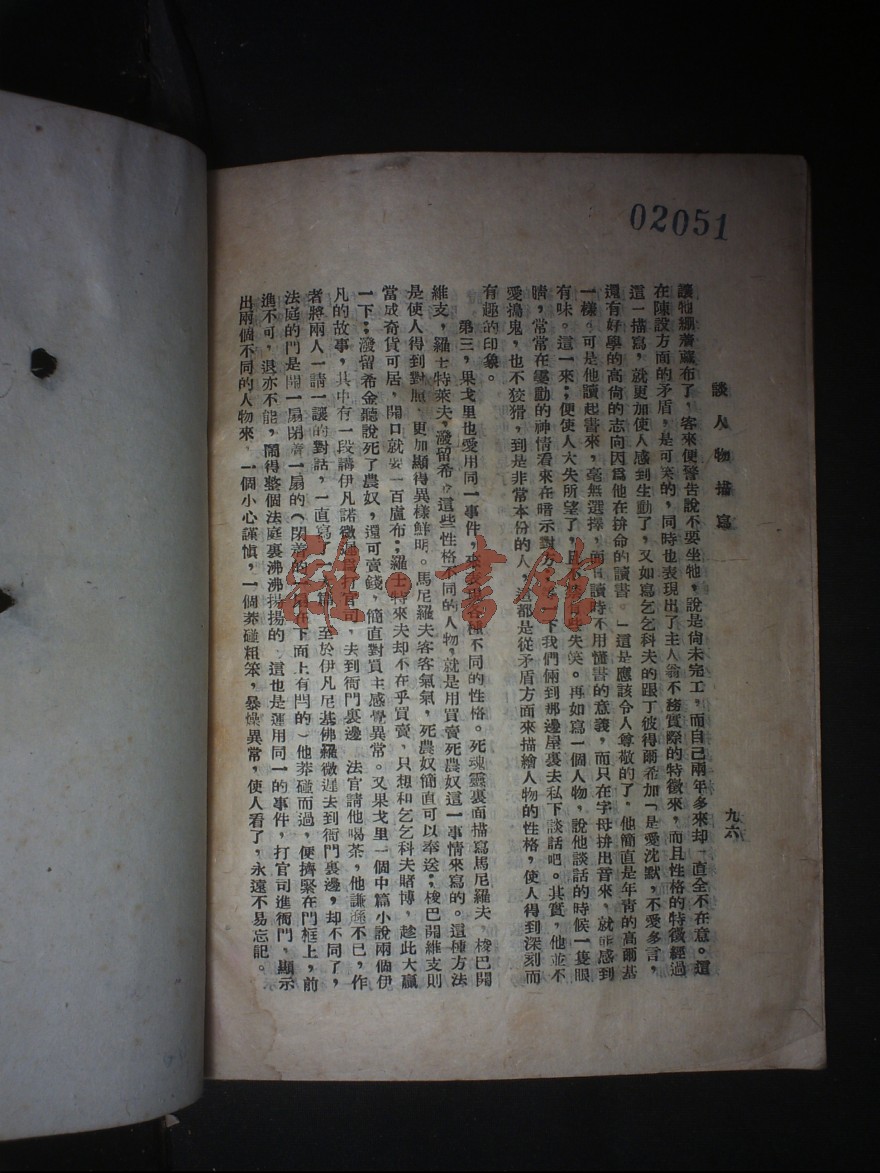 02051
談人物描寫
九六
讓牠繃蔴布了，客來便警告說不要坐牠，說是尙未完工，而自己兩年多來却一直全不在意。這
在陳說方面的矛盾，是可笑的，同時也表現出了主人翁不務實際的特徵來，而且性格的特徵經過
這一描寫，就更加使人感到生動了，又如寫乞乞科夫的跟丁彼得爾希加「是愛沈默，不愛多言，
還有好學的高尙的志向因爲他在拚命的讀書。」這是應該令人尊敬的了，他簡直是年靑的高爾基
一樣。可是他讀起書來，毫無選擇，而且讀時不用懂書的意義，而只在字母拚出音來，就能感到
有味。這一來；便使人大失所望了，且不 些失笑。再如寫一個人物，說他談話的時候一隻眼
睛，常常在靈動的神情看來在暗示對方 下我們倆到那邊屋裏去私下談話吧。其實，他並不
愛搗鬼，也不狡猾，到是非常本份的人，這都是從矛盾方面來描繪人物的性格，使人得到深刻而
有趣的印象。
第三，果戈里也愛用同一事件，來 各種不同的性格。死魂靈裏面描寫馬尼羅夫，梭巴開
維支，羅士特萊夫，潑留希，這些性格不同的人物，就是用買賣死農奴這一事情來寫的。這種方法
是使人得到對照，更加顯得異樣鮮明。馬尼羅夫客客氣氣，死農奴簡直可以奉送；梭巴開維支則
當成奇貨可居，開口就要一百盧布；羅士特來夫却不在乎買賣，只想和乞乞科夫賭博，趁此大贏
一下；潑留希金聽說死了農奴，還可賣錢，簡直對買主感覺異常。又果戈里一個中篇小說兩個伊
凡的故事，其中有一段講伊凡諾微 打官司，去到衙門裏邊 法官請他喝茶，他謙遜不已，作
者將兩人一請一讓的對話，一直寫了 至於伊凡尼基佛羅微遲去到衙門裏邊，却不同了，
法庭的門是開一扇閉着一扇的（閉着的一扇在下面上有閂的）他莽碰而過，便擠緊在門框上，前
進不可，退亦不能，鬧得整個法庭裏沸沸揚揚的 這也是運用同一的事件，打官司進衙門，顯示
出兩個不同的人物來，一個小心謹愼，一個莽碰粗笨，暴燥異常，使人看了，永遠不易忘記。
雜·書館